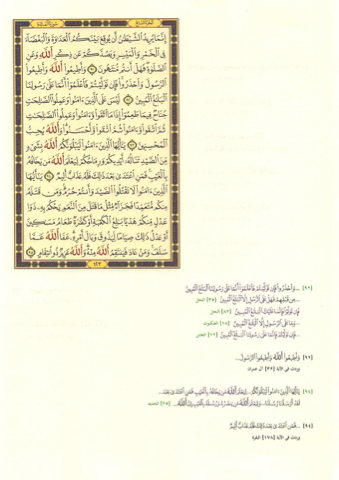 إِنَّمَا يُرِيدُ ٱلشَّيْطَٰنُ أَن يُوقِعَ بَيْنَكُمُ ٱلْعَدَٰوَةَ وَٱلْبَغْضَآءَ
فِى ٱلْخَمْرِ وَٱلْمَيْسِرِ وَيَصُدَّكُمْ عَن ذِكْرِ ٱللَّهِ وَعَنِ
ٱلصَّلَوٰةِ فَهَلْ أَنتُم مُّنتَهُونَ ٩١ وَأَطِيعُوا۟ ٱللَّهَ وَأَطِيعُوا۟
ٱلرَّسُولَ وَٱحْذَرُوا۟ فَإِن تَوَلَّيْتُمْ فَٱعْلَمُوٓا۟ أَنَّمَا عَلَىٰ رَسُولِنَا
ٱلْبَلَٰغُ ٱلْمُبِينُ ٩٢ لَيْسَ عَلَى ٱلَّذِينَ ءَامَنُوا۟ وَعَمِلُوا۟ ٱلصَّٰلِحَٰتِ
جُنَاحٌ فِيمَا طَعِمُوٓا۟ إِذَا مَا ٱتَّقَوا۟ وَّءَامَنُوا۟ وَعَمِلُوا۟ ٱلصَّٰلِحَٰتِ
ثُمَّ ٱتَّقَوا۟ وَّءَامَنُوا۟ ثُمَّ ٱتَّقَوا۟ وَّأَحْسَنُوا۟ وَٱللَّهُ يُحِبُّ
ٱلْمُحْسِنِينَ ٩٣ يَٰٓأَيُّهَا ٱلَّذِينَ ءَامَنُوا۟ لَيَبْلُوَنَّكُمُ ٱللَّهُ بِشَىْءٍ
مِّنَ ٱلصَّيْدِ تَنَالُهُۥٓ أَيْدِيكُمْ وَرِمَاحُكُمْ لِيَعْلَمَ ٱللَّهُ مَن يَخَافُهُۥ
بِٱلْغَيْبِ فَمَنِ ٱعْتَدَىٰ بَعْدَ ذَٰلِكَ فَلَهُۥ عَذَابٌ أَلِيمٌ ٩٤ يَٰٓأَيُّهَا
ٱلَّذِينَ ءَامَنُوا۟ لَا تَقْتُلُوا۟ ٱلصَّيْدَ وَأَنتُمْ حُرُمٌ وَمَن قَتَلَهُۥ
مِنكُم مُّتَعَمِّدًا فَجَزَآءٌ مِّثْلُ مَا قَتَلَ مِنَ ٱلنَّعَمِ يَحْكُمُ بِهِۦ ذَوَا
عَدْلٍ مِّنكُمْ هَدْيًۢا بَٰلِغَ ٱلْكَعْبَةِ أَوْ كَفَّٰرَةٌ طَعَامُ مَسَٰكِينَ
أَوْ عَدْلُ ذَٰلِكَ صِيَامًا لِّيَذُوقَ وَبَالَ أَمْرِهِۦ عَفَا ٱللَّهُ عَمَّا
سَلَفَ وَمَنْ عَادَ فَيَنتَقِمُ ٱللَّهُ مِنْهُ وَٱللَّهُ عَزِيزٌ ذُو ٱنتِقَامٍ ٩٥
١٢٣
(٩٢) ...وَٱحْذَرُوا۟ فَإِن تَوَلَّيْتُمْ فَٱعْلَمُوٓا۟ أَنَّمَا عَلَىٰ رَسُولِنَا ٱلْبَلَٰغُ ٱلْمُبِينُ
...مِن قَبْلِهِمْ فَهَلْ عَلَى ٱلرُّسُلِ إِلَّا ٱلْبَلَٰغُ ٱلْمُبِينُ [٣٥] النحل
فَإِن تَوَلَّوْا۟ فَإِنَّمَا عَلَيْكَ ٱلْبَلَٰغُ ٱلْمُبِينُ [٨٢] النحل
...وَمَا عَلَى ٱلرَّسُولِ إِلَّا ٱلْبَلَٰغُ ٱلْمُبِينُ [١٨] العنكبوت
...فَإِن تَوَلَّيْتُمْ فَإِنَّمَا عَلَىٰ رَسُولِنَا ٱلْبَلَٰغُ ٱلْمُبِينُ [١٢] التغابن
(٩٢) وَأَطِيعُوا۟ ٱللَّهَ وَأَطِيعُوا۟ ٱلرَّسُولَ...
آل عمران
(٩٤) يَٰٓأَيُّهَا ٱلَّذِينَ ءَامَنُوا۟ لَيَبْلُوَنَّكُمُ ... لِيَعْلَمَ ٱللَّهُ مَن يَخَافُهُۥ بِٱلْغَيْبِ فَمَنِ ٱعْتَدَىٰ بَعْدَ...
لَقَدْ أَرْسَلْنَا رُسُلَنَا ... وَلِيَعْلَمَ ٱللَّهُ مَن يَنصُرُهُۥ وَرُسُلَهُۥ بِٱلْغَيْبِ إِنَّ ٱللَّهَ... [٢٥] الحديد
(٩٤) ...فَمَنِ ٱعْتَدَىٰ بَعْدَ ذَٰلِكَ فَلَهُۥ عَذَابٌ أَلِيمٌ
وردت في الآية [١٧٨] البقرة